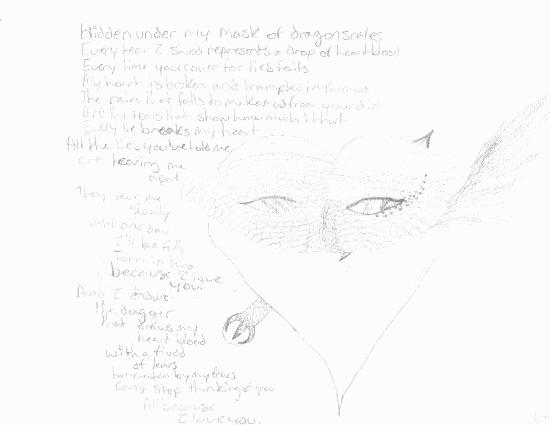 Hidden under my mask of dragonscales
Every tear I shed represents a drop of heartblood
Every time your cover for lies fails
My heart is broken and trampled in
The rain that falls to make mud from your dirt
Are the tears that show how much it hurt
Every lie breaks my heart
All the lies you've told me
are tearing me
apart
They tear me
slowly
until one day
I'll be fully
torn in two
because I love
you.
And I
the dagger
that draws my
heart blood
with a flood
of tears
by my fears
can't stop thinking of you
All because
I love you.